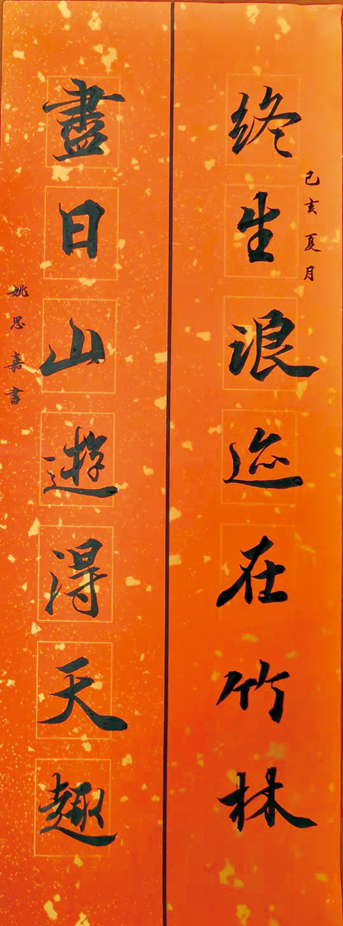 己亥夏月
终生浪迹在竹林
盡日山遊得天趣
姚思嘉書